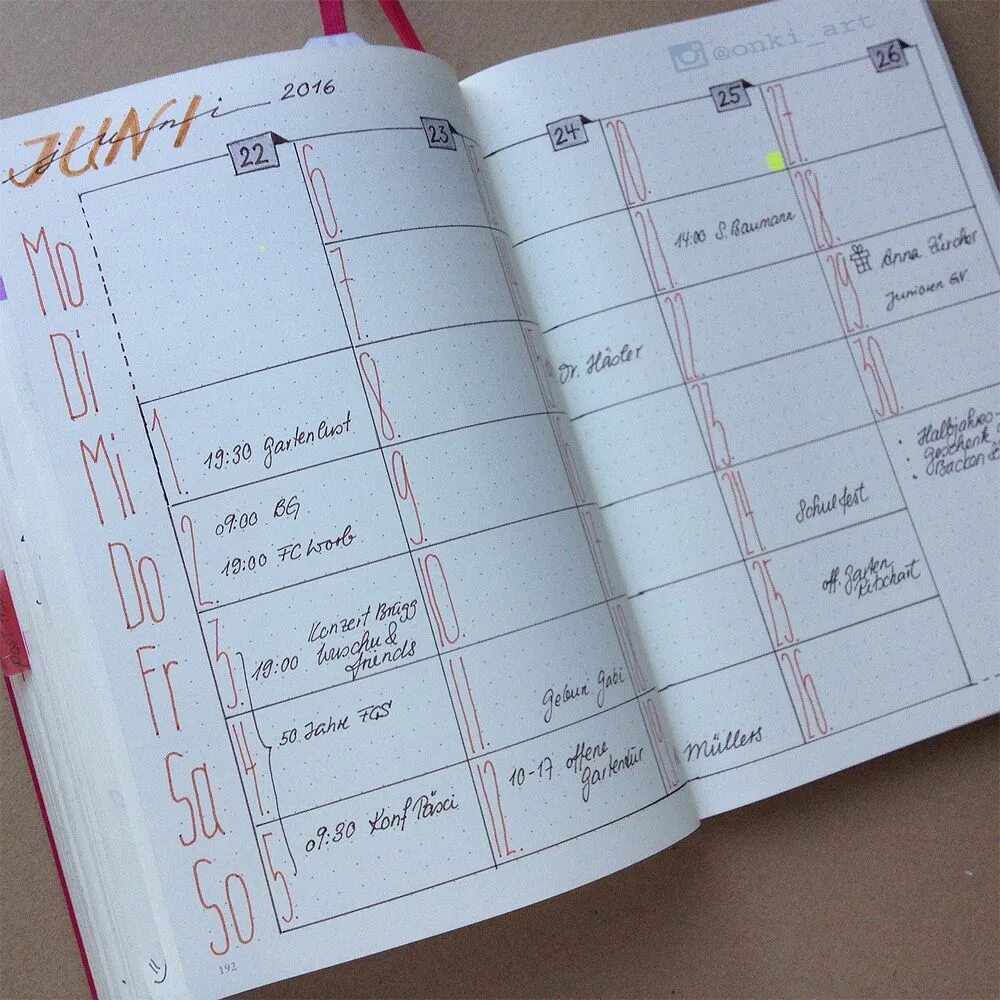 @onki_art
JUNI
juni 2016
22
23
24
25
26
Mo
Di
Mi
Do
Fr
Sa
So
1.
19:30 Gartenlust
2.
09:00 BG
19:00 FC Worb
3.
Konzert Brügg
19:00 Wuschu &
friends
4.
50. Jahre FGS
5.
09:30 Konf Päsci
6.
7.
8.
9.
10.
11.
Geburi Gabi
12.
10-17. offene
Gartentür
Dr. Häsler
Müllers
20.
21.
14:00 S. Baumann
22.
23.
24.
Schulfest
25.
off. Garten
26.
27.
28.
29.
Anna Zürcher
Junioren GV.
30.
Halbjahres
Geschenk
Backen
192